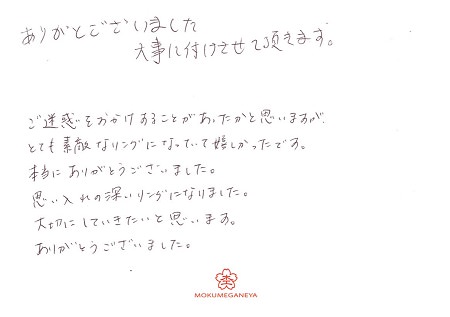 ありがとございました
大事に付けさせて頂きます。
ご迷惑をおかけすることがあったかと思いますが、
とても素敵なリングになっていて嬉しかったです。
本当にありがとうございました。
思い入れの深いリングになりました。
大切にしていきたいと思います。
ありがとうございました。
MOKUMEGANEYA